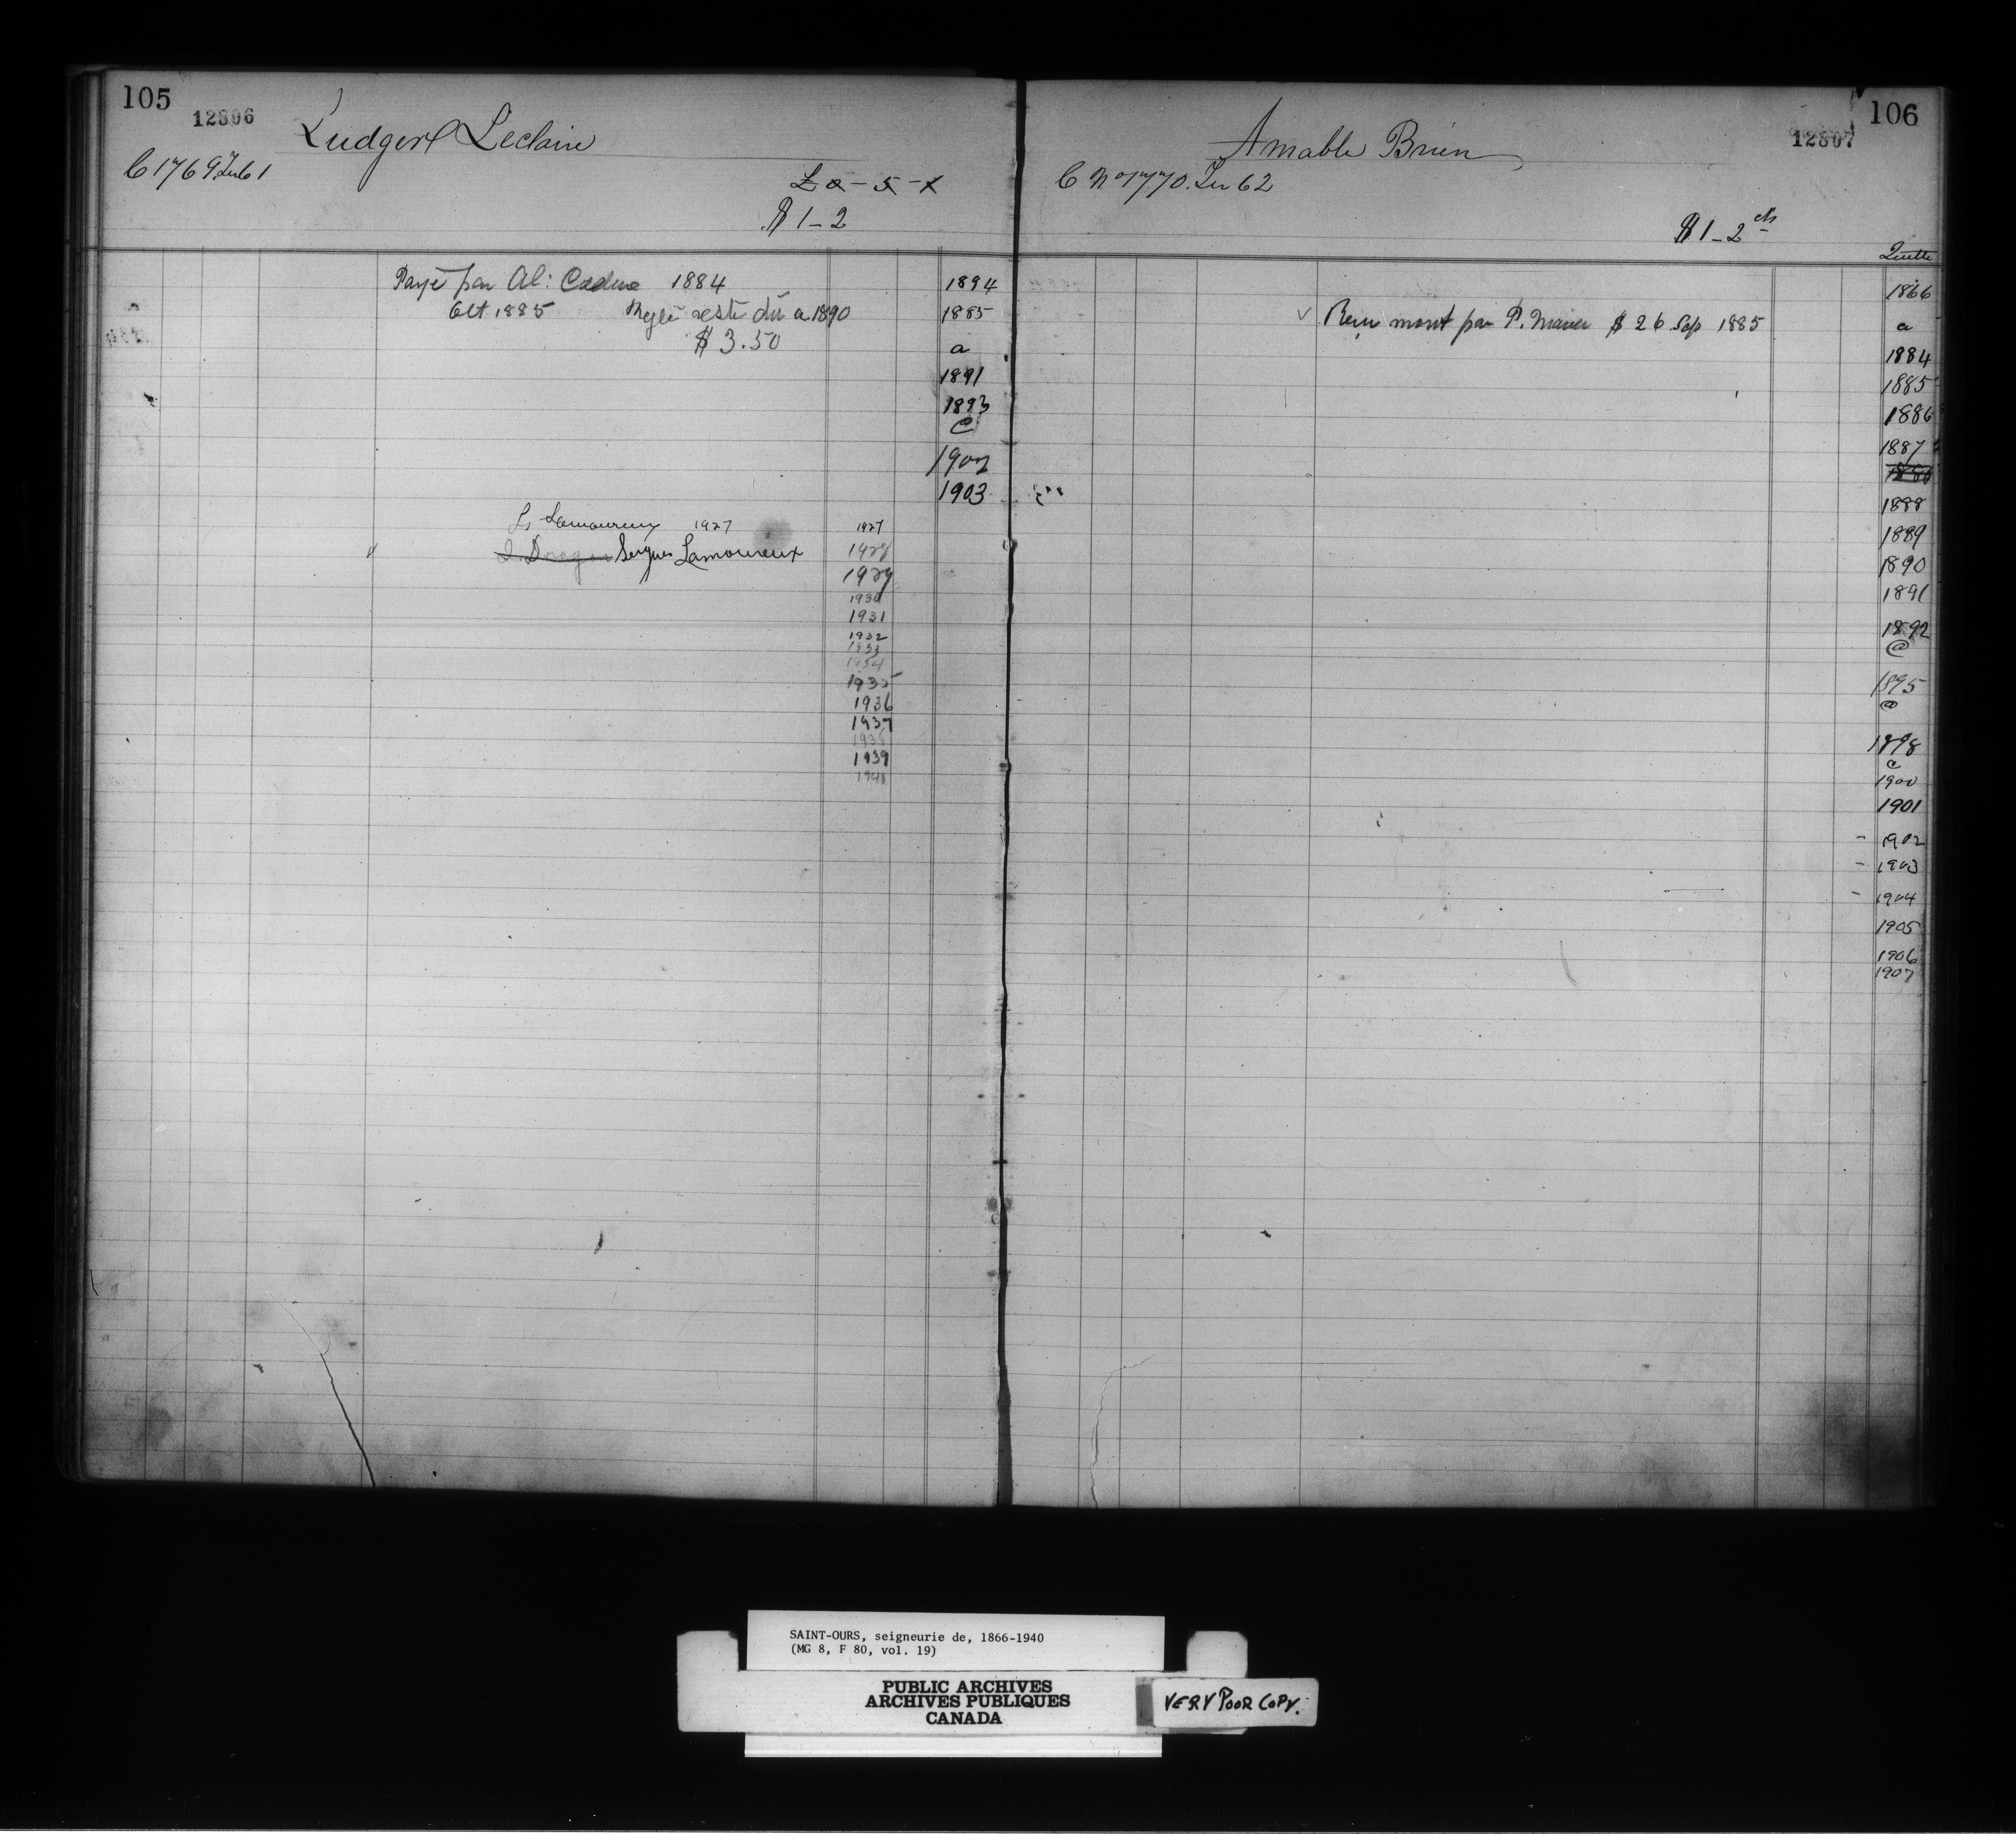 105
12806
Ludger Leclaire
C 1769 Ter 61
£0-5-1
$1-2
Payé par Al: Cadue 1884
Oct 1885 Reglé reste dû a 1890
$3.50
1894
1885
a
1891
1893
@
1902
1903
L. Lamoureux 1927
Sergius Lamoureux
1927
1928
1929
1930
1931
1932
1933
1934
1935
1936
1937
1938
1939
1940
106
12807
Amable Brien
C No 1770. Ter 62
$1-2 cts
Quitte
Reçu mont par P. $ 26 Sep 1885
1866
a
1884
1885
1886
1887
1888
1889
1890
1891
1892
@
1895
@
1898
@
1900
1901
- 1902
- 1903
- 1904
1905
1906
1907
SAINT-OURS, seigneurie de, 1866-1940
(MG 8, F 80, vol. 19)
PUBLIC ARCHIVES
ARCHIVES PUBLIQUES
CANADA
VERY POOR COPY.